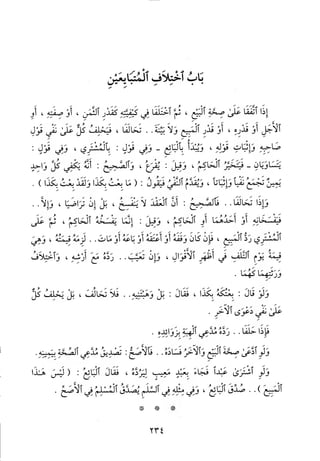 بَابُ ٱخْتِلَافِ ٱلْمُتَبَايِعَيْنِ
إِذَا ٱتَّفَقَا عَلَىٰ صِحَّةِ ٱلْبَيْعِ ، ثُمَّ ٱخْتَلَفَا فِي كَيْفِيَّتِهِ كَقَدْرِ ٱلثَّمَنِ ، أَوْ صِفَتِهِ ، أَوِ
ٱلْأَجَلِ أَوْ قَدْرِهِ ، أَوْ قَدْرِ ٱلْمَبِيعِ وَلَا بَيِّنَةَ . . تَحَالَفَا ، فَيَحْلِفُ كُلٌّ عَلَىٰ نَفْيِ قَوْلِ
صَاحِبِهِ وَإِثْبَاتِ قَوْلِهِ ، وَيُبْدَأُ بِٱلْبَائِعِ - وَفِي قَوْلٍ : بِٱلْمُشْتَرِي ، وَفِي قَوْلٍ :
يَتَسَاوَيَانِ - فَيَتَخَيَّرُ ٱلْحَاكِمُ ، وَقِيلَ : يُقْرَعُ ، وَٱلصَّحِيحُ : أَنَّهُ يَكْفِي كُلَّ وَاحِدٍ
يَمِينٌ تَجْمَعُ نَفْياً وَإِثْبَاتاً ، وَيُقَدَّمُ ٱلنَّفْيُ فَيَقُولُ : ( مَا بِعْتُ بِكَذَا وَلَقَدْ بِعْتُ بِكَذَا ) .
وَإِذَا تَحَالَفَا . . فَٱلصَّحِيحُ : أَنَّ ٱلْعَقْدَ لَا يَنْفَسِخُ ، بَلْ إِنْ تَرَاضَيَا ، وَإِلَّا . .
فَيَفْسَخَانِهِ أَوْ أَحَدُهُمَا أَوِ ٱلْحَاكِمُ ، وَقِيلَ : إِنَّمَا يَفْسَخُهُ ٱلْحَاكِمُ ، ثُمَّ عَلَى
ٱلْمُشْتَرِي رَدُّ ٱلْمَبِيعِ ، فَإِنْ كَانَ وَقَفَهُ أَوْ أَعْتَقَهُ أَوْ بَاعَهُ أَوْ مَاتَ . . لَزِمَهُ قِيمَتُهُ ، وَهِيَ
قِيمَةُ يَوْمِ ٱلتَّلَفِ فِي أَظْهَرِ ٱلْأَقْوَالِ ، وَإِنْ تَعَيَّبَ . . رَدَّهُ مَعَ أَرْشِهِ ، وَٱخْتِلَافُ
وَرَثَتِهِمَا كَهُمَا .
وَلَوْ قَالَ : بِعْتُكَهُ بِكَذَا ، فَقَالَ : بَلْ وَهَبْتَنِيهِ . . فَلَا تَحَالُفَ ، بَلْ يَحْلِفُ كُلٌّ
عَلَىٰ نَفْيِ دَعْوَى ٱلْآخَرِ .
فَإِذَا حَلَفَا . . رَدَّهُ مُدَّعِي ٱلْهِبَةِ بِزَوَائِدِهِ .
وَلَوِ ٱدَّعَىٰ صِحَّةَ ٱلْبَيْعِ وَٱلْآخَرُ فَسَادَهُ . . فَٱلْأَصَحُّ : تَصْدِيقُ مُدَّعِي ٱلصِّحَّةِ بِيَمِينِهِ .
وَلَوِ ٱشْتَرَىٰ عَبْداً فَجَاءَ بِعَبْدٍ مَعِيبٍ لِيَرُدَّهُ ، فَقَالَ ٱلْبَائِعُ : ( لَيْسَ هَـٰذَا
ٱلْمَبِيعَ ) . . صُدِّقَ ٱلْبَائِعُ ، وَفِي مِثْلِهِ فِي ٱلسَّلَمِ يُصَدَّقُ ٱلْمُسْلِمُ فِي ٱلْأَصَحِّ .
* * *
٢٣٤